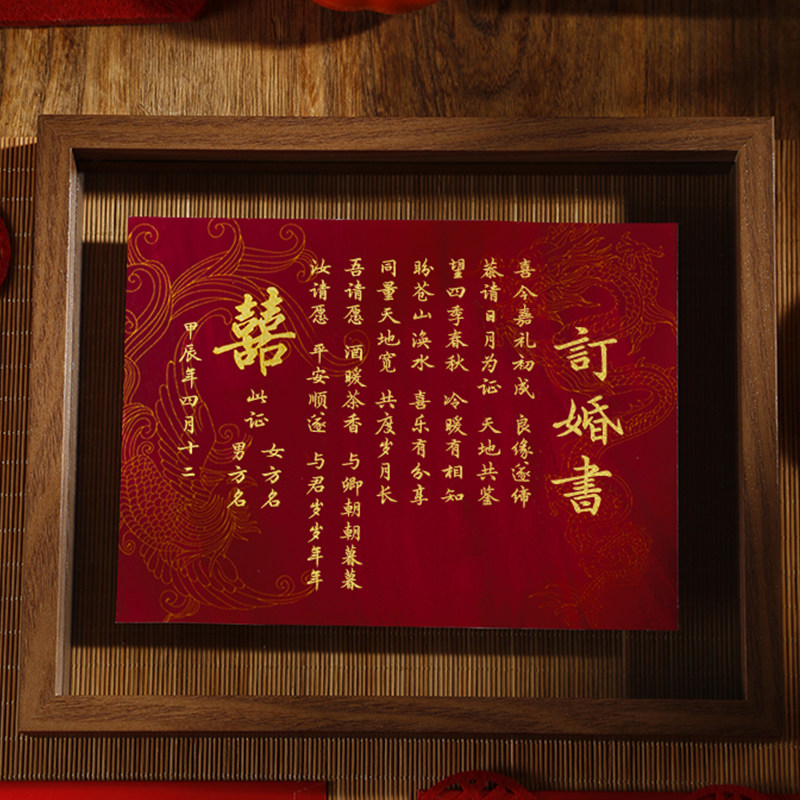 訂婚書
喜今嘉礼初成 良缘遂缔
恭请日月为证 天地共鉴
望四季春秋 冷暖有相知
盼苍山涣水 喜乐有分享
同量天地宽 共度岁月长
吾请愿 酒暖茶香 与卿朝朝暮暮
汝请愿 平安顺遂 与君岁岁年年
囍
此证
女方名
男方名
甲辰年四月十二